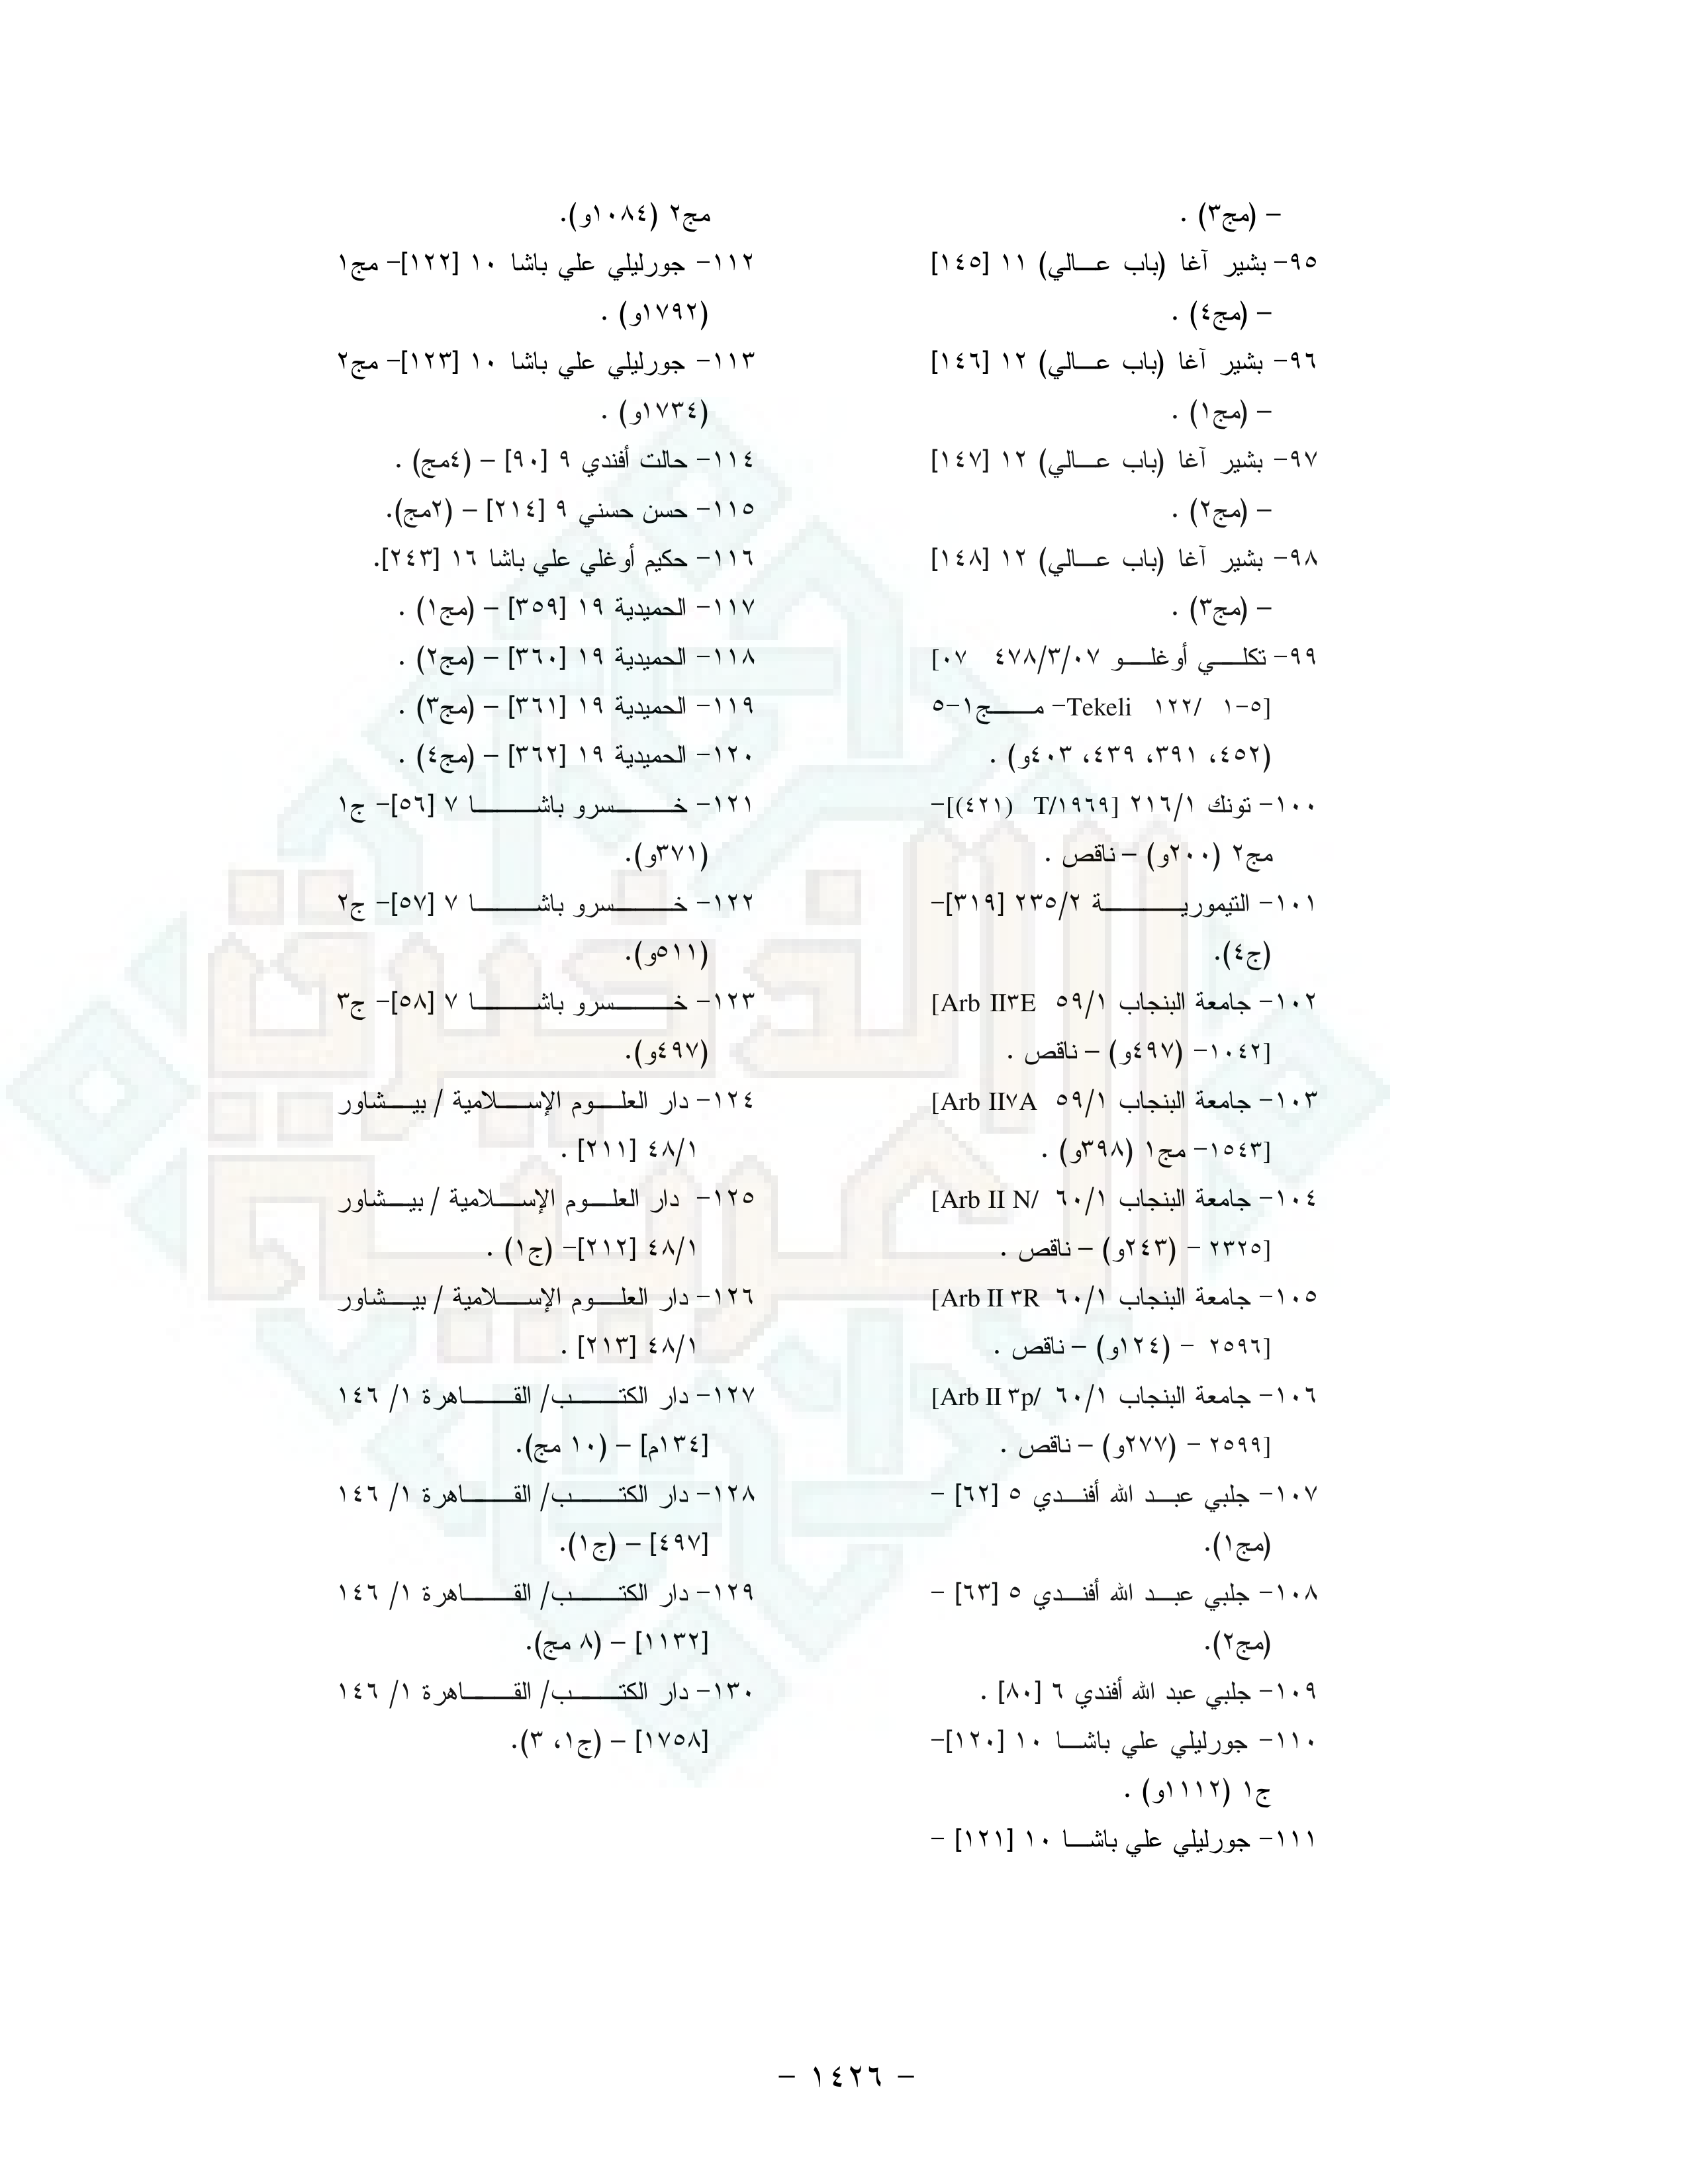 – (مج٣) .
٩٥- بشير آغا (باب عـــالي) ١١ [١٤٥]
– (مج٤) .
٩٦- بشير آغا (باب عـــالي) ١٢ [١٤٦]
– (مج١) .
٩٧- بشير آغا (باب عـــالي) ١٢ [١٤٧]
– (مج٢) .
٩٨- بشير آغا (باب عـــالي) ١٢ [١٤٨]
– (مج٣) .
٩٩- تكلـــــي أوغلـــــو ٤٧٨/٣/٠٧ [٠٧
Tekeli ١٢٢/ ١-٥]- مـــــــج١-٥
(٤٥٢، ٣٩١، ٤٣٩، ٤٠٣و) .
١٠٠- تونك ٢١٦/١ [T/١٩٦٩ (٤٢١)]-
مج٢ (٢٠٠و) – ناقص .
١٠١- التيموريـــــــــــة ٢٣٥/٢ [٣١٩]-
(ج٤).
١٠٢- جامعة البنجاب ٥٩/١ [Arb II٣E
١٠٤٢]- (٤٩٧و) – ناقص .
١٠٣- جامعة البنجاب ٥٩/١ [Arb II٧A
١٥٤٣]- مج١ (٣٩٨و) .
١٠٤- جامعة البنجاب ٦٠/١ [Arb II N/
٢٣٢٥] – (٢٤٣و) – ناقص .
١٠٥- جامعة البنجاب ٦٠/١ [Arb II ٣R
٢٥٩٦] – (١٢٤و) – ناقص .
١٠٦- جامعة البنجاب ٦٠/١ [Arb II ٣p/
٢٥٩٩] – (٢٧٧و) – ناقص .
١٠٧- جلبي عبـــد الله أفنـــدي ٥ [٦٢] –
(مج١).
١٠٨- جلبي عبـــد الله أفنـــدي ٥ [٦٣] –
(مج٢).
١٠٩- جلبي عبد الله أفندي ٦ [٨٠] .
١١٠- جورليلي علي باشـــا ١٠ [١٢٠]-
ج١ (١١١٢و) .
١١١- جورليلي علي باشـــا ١٠ [١٢١] –
مج٢ (١٠٨٤و).
١١٢- جورليلي علي باشا ١٠ [١٢٢]- مج١
(١٧٩٢و) .
١١٣- جورليلي علي باشا ١٠ [١٢٣]- مج٢
(١٧٣٤و) .
١١٤- حالت أفندي ٩ [٩٠] – (٤مج) .
١١٥- حسن حسني ٩ [٢١٤] – (٢مج).
١١٦- حكيم أوغلي علي باشا ١٦ [٢٤٣].
١١٧- الحميدية ١٩ [٣٥٩] – (مج١) .
١١٨- الحميدية ١٩ [٣٦٠] – (مج٢) .
١١٩- الحميدية ١٩ [٣٦١] – (مج٣) .
١٢٠- الحميدية ١٩ [٣٦٢] – (مج٤) .
١٢١- خـــــــــسرو باشـــــــــا ٧ [٥٦]- ج١
(٣٧١و).
١٢٢- خـــــــــسرو باشـــــــــا ٧ [٥٧]- ج٢
(٥١١و).
١٢٣- خـــــــــسرو باشـــــــــا ٧ [٥٨]- ج٣
(٤٩٧و).
١٢٤- دار العلـــوم الإســـلامية / بيـــشاور
٤٨/١ [٢١١] .
١٢٥- دار العلـــوم الإســـلامية / بيـــشاور
٤٨/١ [٢١٢]- (ج١) .
١٢٦- دار العلـــوم الإســـلامية / بيـــشاور
٤٨/١ [٢١٣] .
١٢٧- دار الكتـــــــب/ القـــــــاهرة ١/ ١٤٦
[١٣٤م] – (١٠ مج).
١٢٨- دار الكتـــــــب/ القـــــــاهرة ١/ ١٤٦
[٤٩٧] – (ج١).
١٢٩- دار الكتـــــــب/ القـــــــاهرة ١/ ١٤٦
[١١٣٢] – (٨ مج).
١٣٠- دار الكتـــــــب/ القـــــــاهرة ١/ ١٤٦
[١٧٥٨] – (ج١، ٣).
الذخيرة
العربية
– ١٤٢٦ –